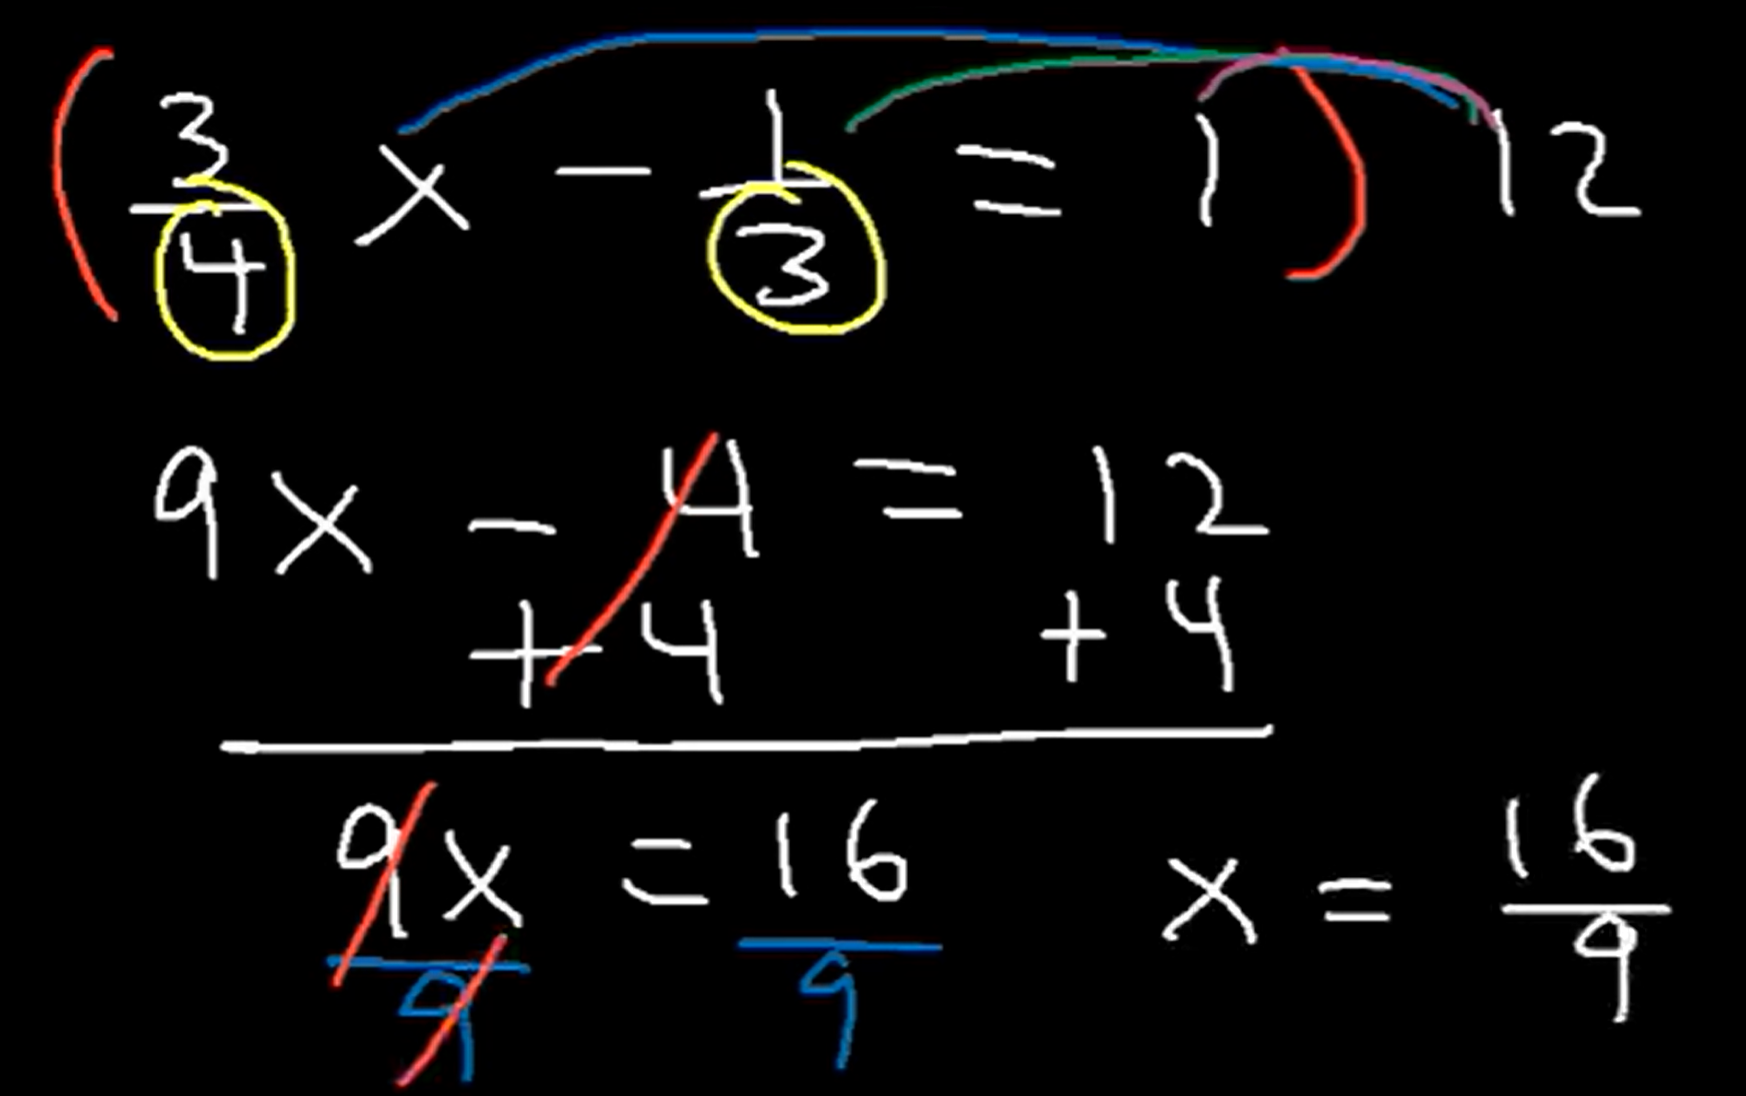 (3/4 x - 1/3 = 1) 12
9x - 4 = 12
+ 4 + 4
9x/9 = 16/9 x = 16/9